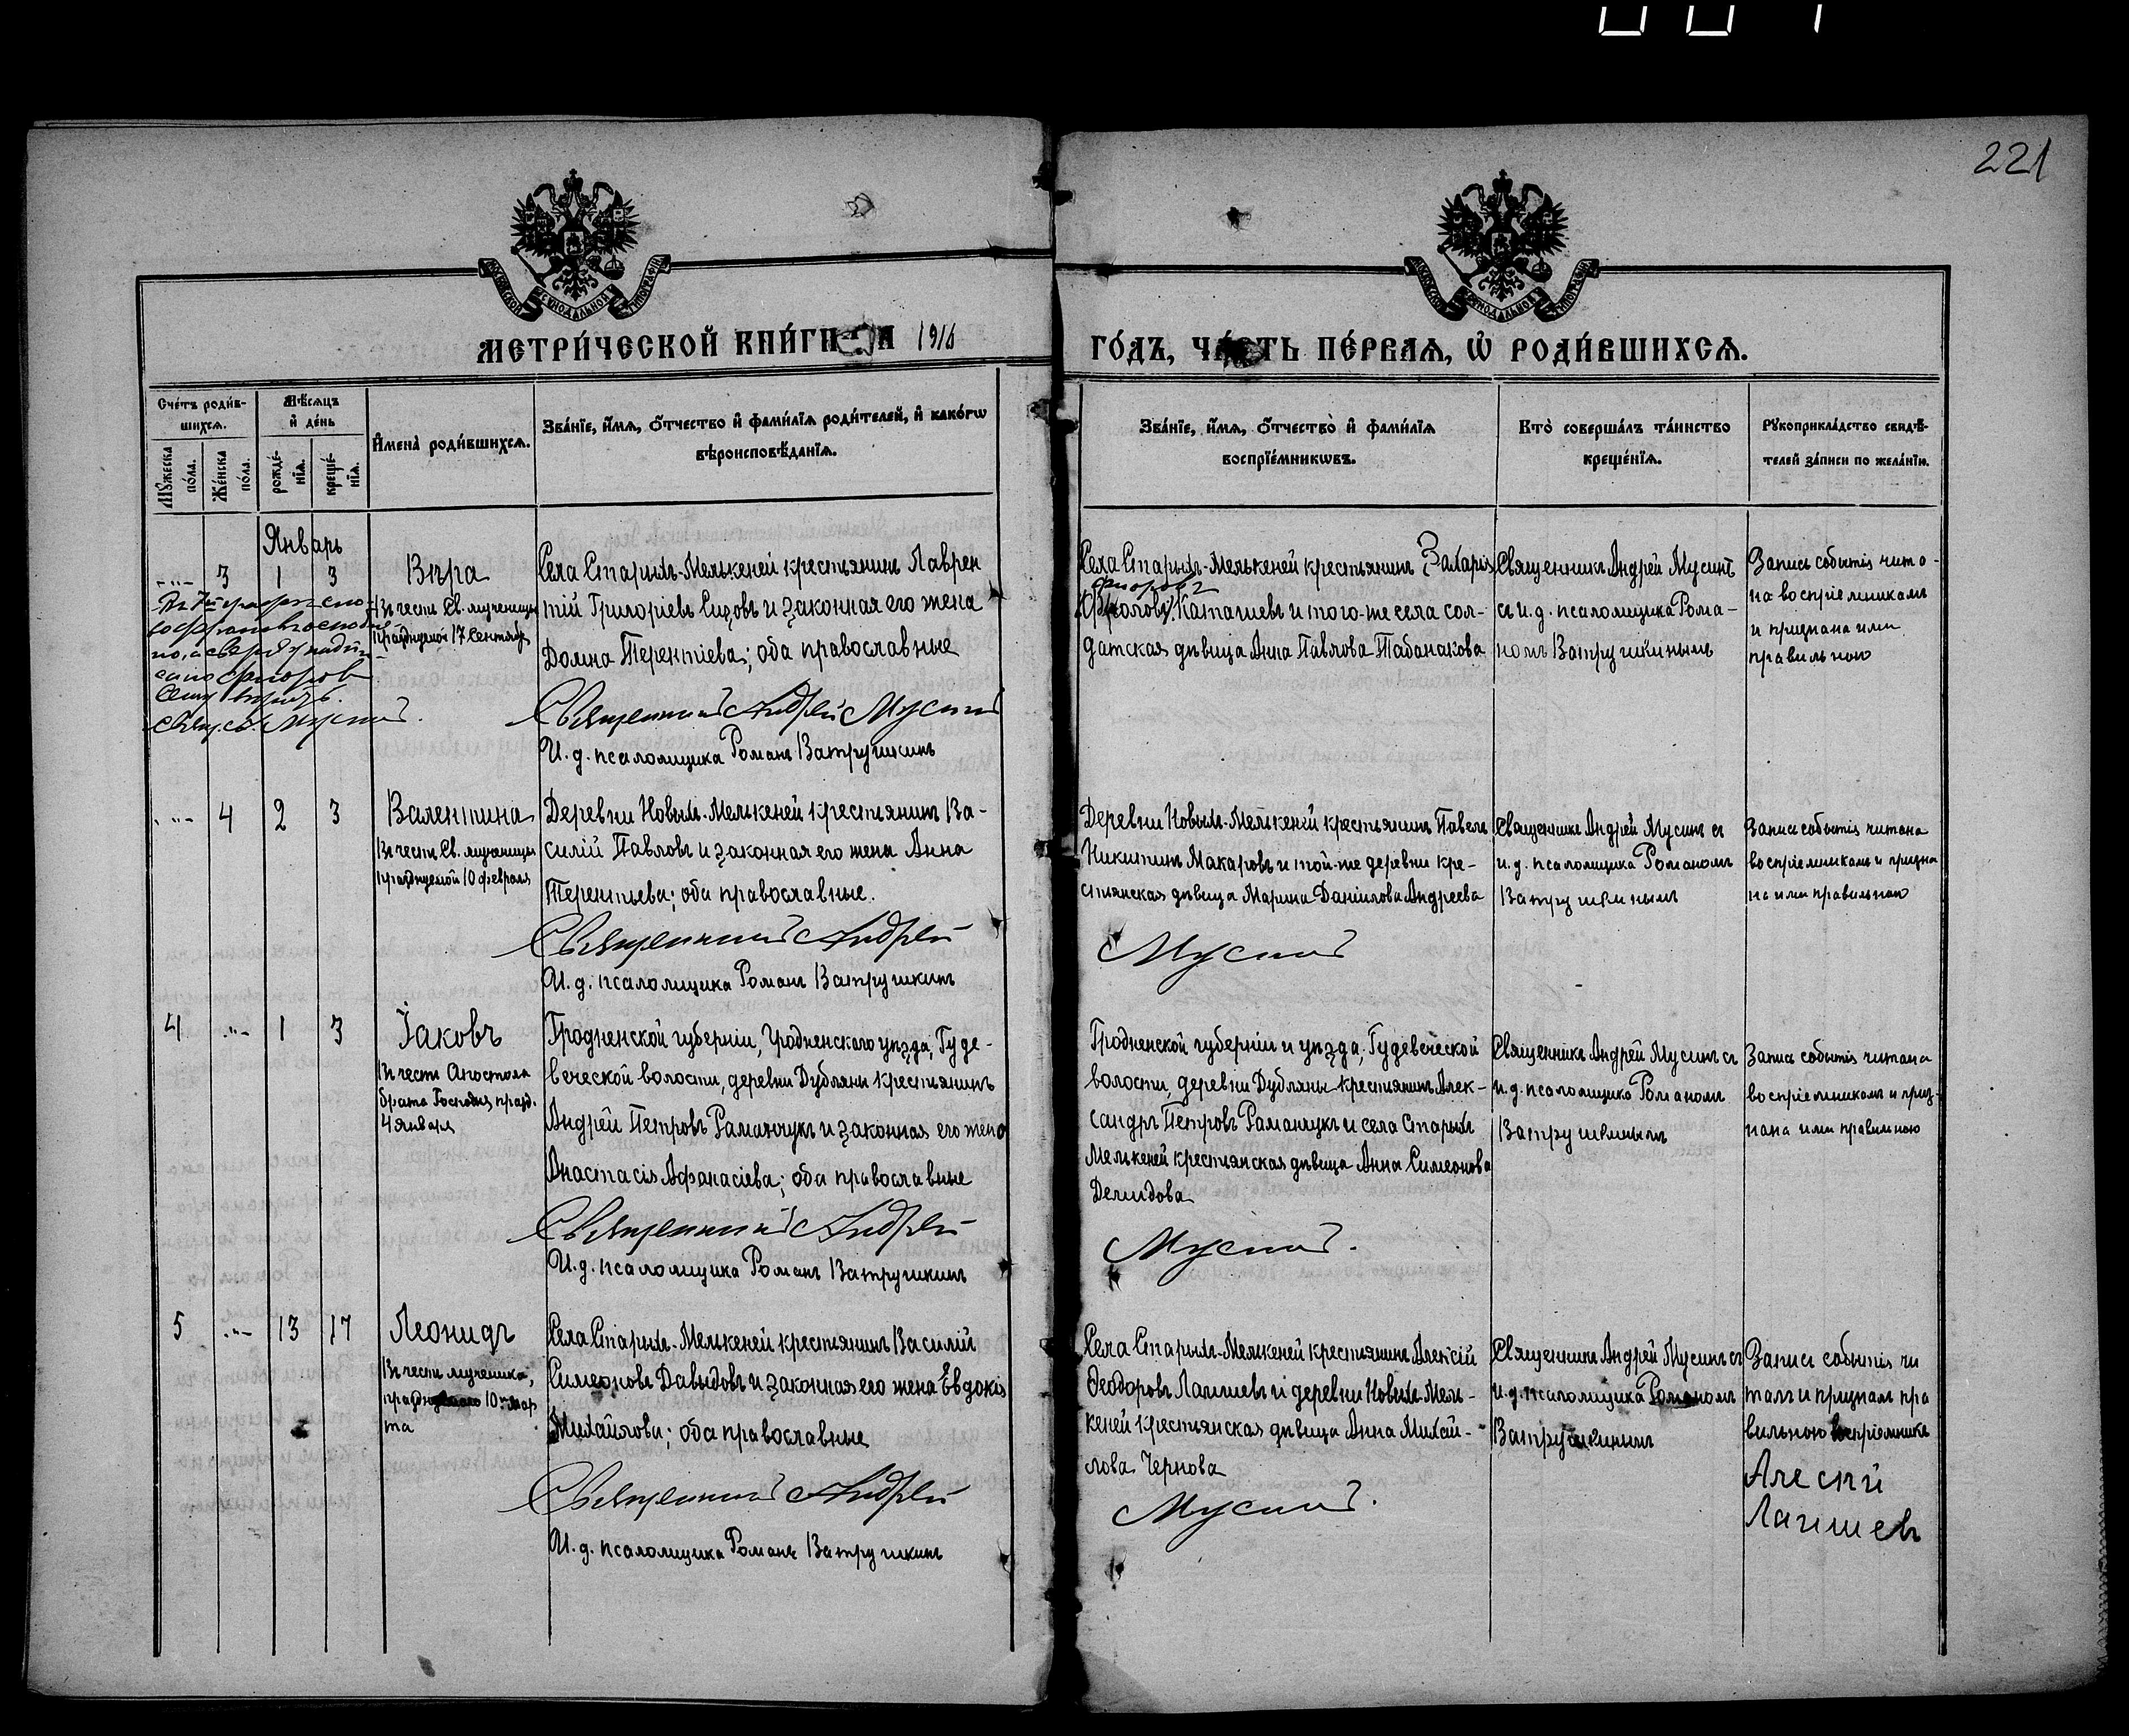 221
МОСКОВСКОЙ СѴНОДАЛЬНОЙ ТИПОГРАФІИ
МОСКОВСКОЙ СѴНОДАЛЬНОЙ ТИПОГРАФІИ
МЕТРИ́ЧЕСКОЙ КНИ́ГИ НА 1916
ГО́ДЪ, ЧА́СТЬ ПЕ́РВАѦ, Ѽ РОДИ́ВШИХСѦ.
Сче́тъ роди́в-
шихсѧ.
Мѣ́сѧцъ
и҆ де́нь
Му́жеска по́ла.
Же́нска по́ла.
рожде́-
нїѧ.
креще́-
нїѧ.
И҆мена̀ роди́вшихсѧ.
Зва́нїе, и҆́мѧ, ѻ҆́тчество и҆ фами́лїѧ роди́телей, и҆ како́гѡ
вѣроисповѣ́данїѧ.
Зва́нїе, и҆́мѧ, ѻ҆́тчество и҆ фами́лїѧ
воспрїе́мникѡвъ.
Кто̀ соверша́лъ та́инство
креще́нїѧ.
Рꙋкоприкла́дство свидѣ́-
телей за́писи по жела́нїю.
Январь
3 1 3
Вѣра
Въ честь Св. мученицы
празднуемой 17 Сентября
Села Старыхъ-Мелькеней крестьянинъ Лаврен
тій Григоріевъ Сизовъ и законная его жена
Домна Терентіева; оба православные
Священникъ Андрей Мусинъ
И. д. псаломщика Романъ Ватрушкинъ
Села Старыхъ-Мелькеней крестьянинъ Захарія
Каташевъ и того-же села сол-
датская дѣвица Анна Павлова Табанакова
Священникъ Андрей Мусинъ
съ и. д. псаломщика Рома-
номъ Ватрушкинымъ
Запись событія чита-
на воспріемникам
и признана ими
правильною
Свящ. Мусинъ.
4 2 3
Валентина
Въ честь Св. мученицы
празднуемой 10 февраля
Деревни Новыхъ-Мелькеней крестьянинъ Ва-
силій Павловъ и законная его жена Анна
Терентьева; оба православные.
Священникъ Андрей
И. д. псаломщика Романъ Ватрушкинъ
Деревни Новыхъ-Мелькеней крестьянинъ Павелъ
Никитинъ Макаровъ и той-же деревни кре-
стьянская дѣвица Марина Даніилова Андреева
Мусинъ
Священникъ Андрей Мусинъ съ
и. д. псаломщика Романомъ
Ватрушкинымъ
Запись событія читана
воспріемникамъ и призна
на ими правильною
4 1 3
Іаковъ
Въ честь Апостола
брата Господня празд.
4 января
Гродненской губерніи, Гродненскаго уѣзда, Гуде-
веческой волости, деревни Дубляны крестьянинъ
Андрей Петровъ Раманчукъ и законная его жена
Анастасія Афанасіева; оба православные
Священникъ Андрей
И. д. псаломщика Романъ Ватрушкинъ
Гродненской губерніи и уѣзда, Гудевеческой
волости, деревни Дубляны крестьянинъ Алек-
сандръ Петровъ Раманчукъ и села Старыхъ
Мелькеней крестьянская дѣвица Анна Симеонова
Демидова
Мусинъ.
Священникъ Андрей Мусинъ съ
и. д. псаломщика Романомъ
Ватрушкинымъ
Запись событія читана
воспріемникамъ и приз-
нана ими правильною
5 13 17
Леонидъ
Въ честь мученика,
10го мар
та
Села Старыхъ-Мелькеней крестьянинъ Василій
Симеоновъ Давыдовъ и законная его жена Евдокія
Михайлова; оба православные
Священникъ Андрей
И. д. псаломщика Романъ Ватрушкинъ
Села Старыхъ-Мелькеней крестьянинъ Алексій
Ѳеодоровъ Лаишевъ и деревни Новыхъ-Мель-
кеней крестьянская дѣвица Анна Михай-
лова Чернова
Мусинъ.
Священникъ Андрей Мусинъ съ
и. д. псаломщика Романомъ
Ватрушкинымъ
Запись событія чи
талъ и призналъ пра
вильною воспріемникъ
Алесяй
Лаишевъ